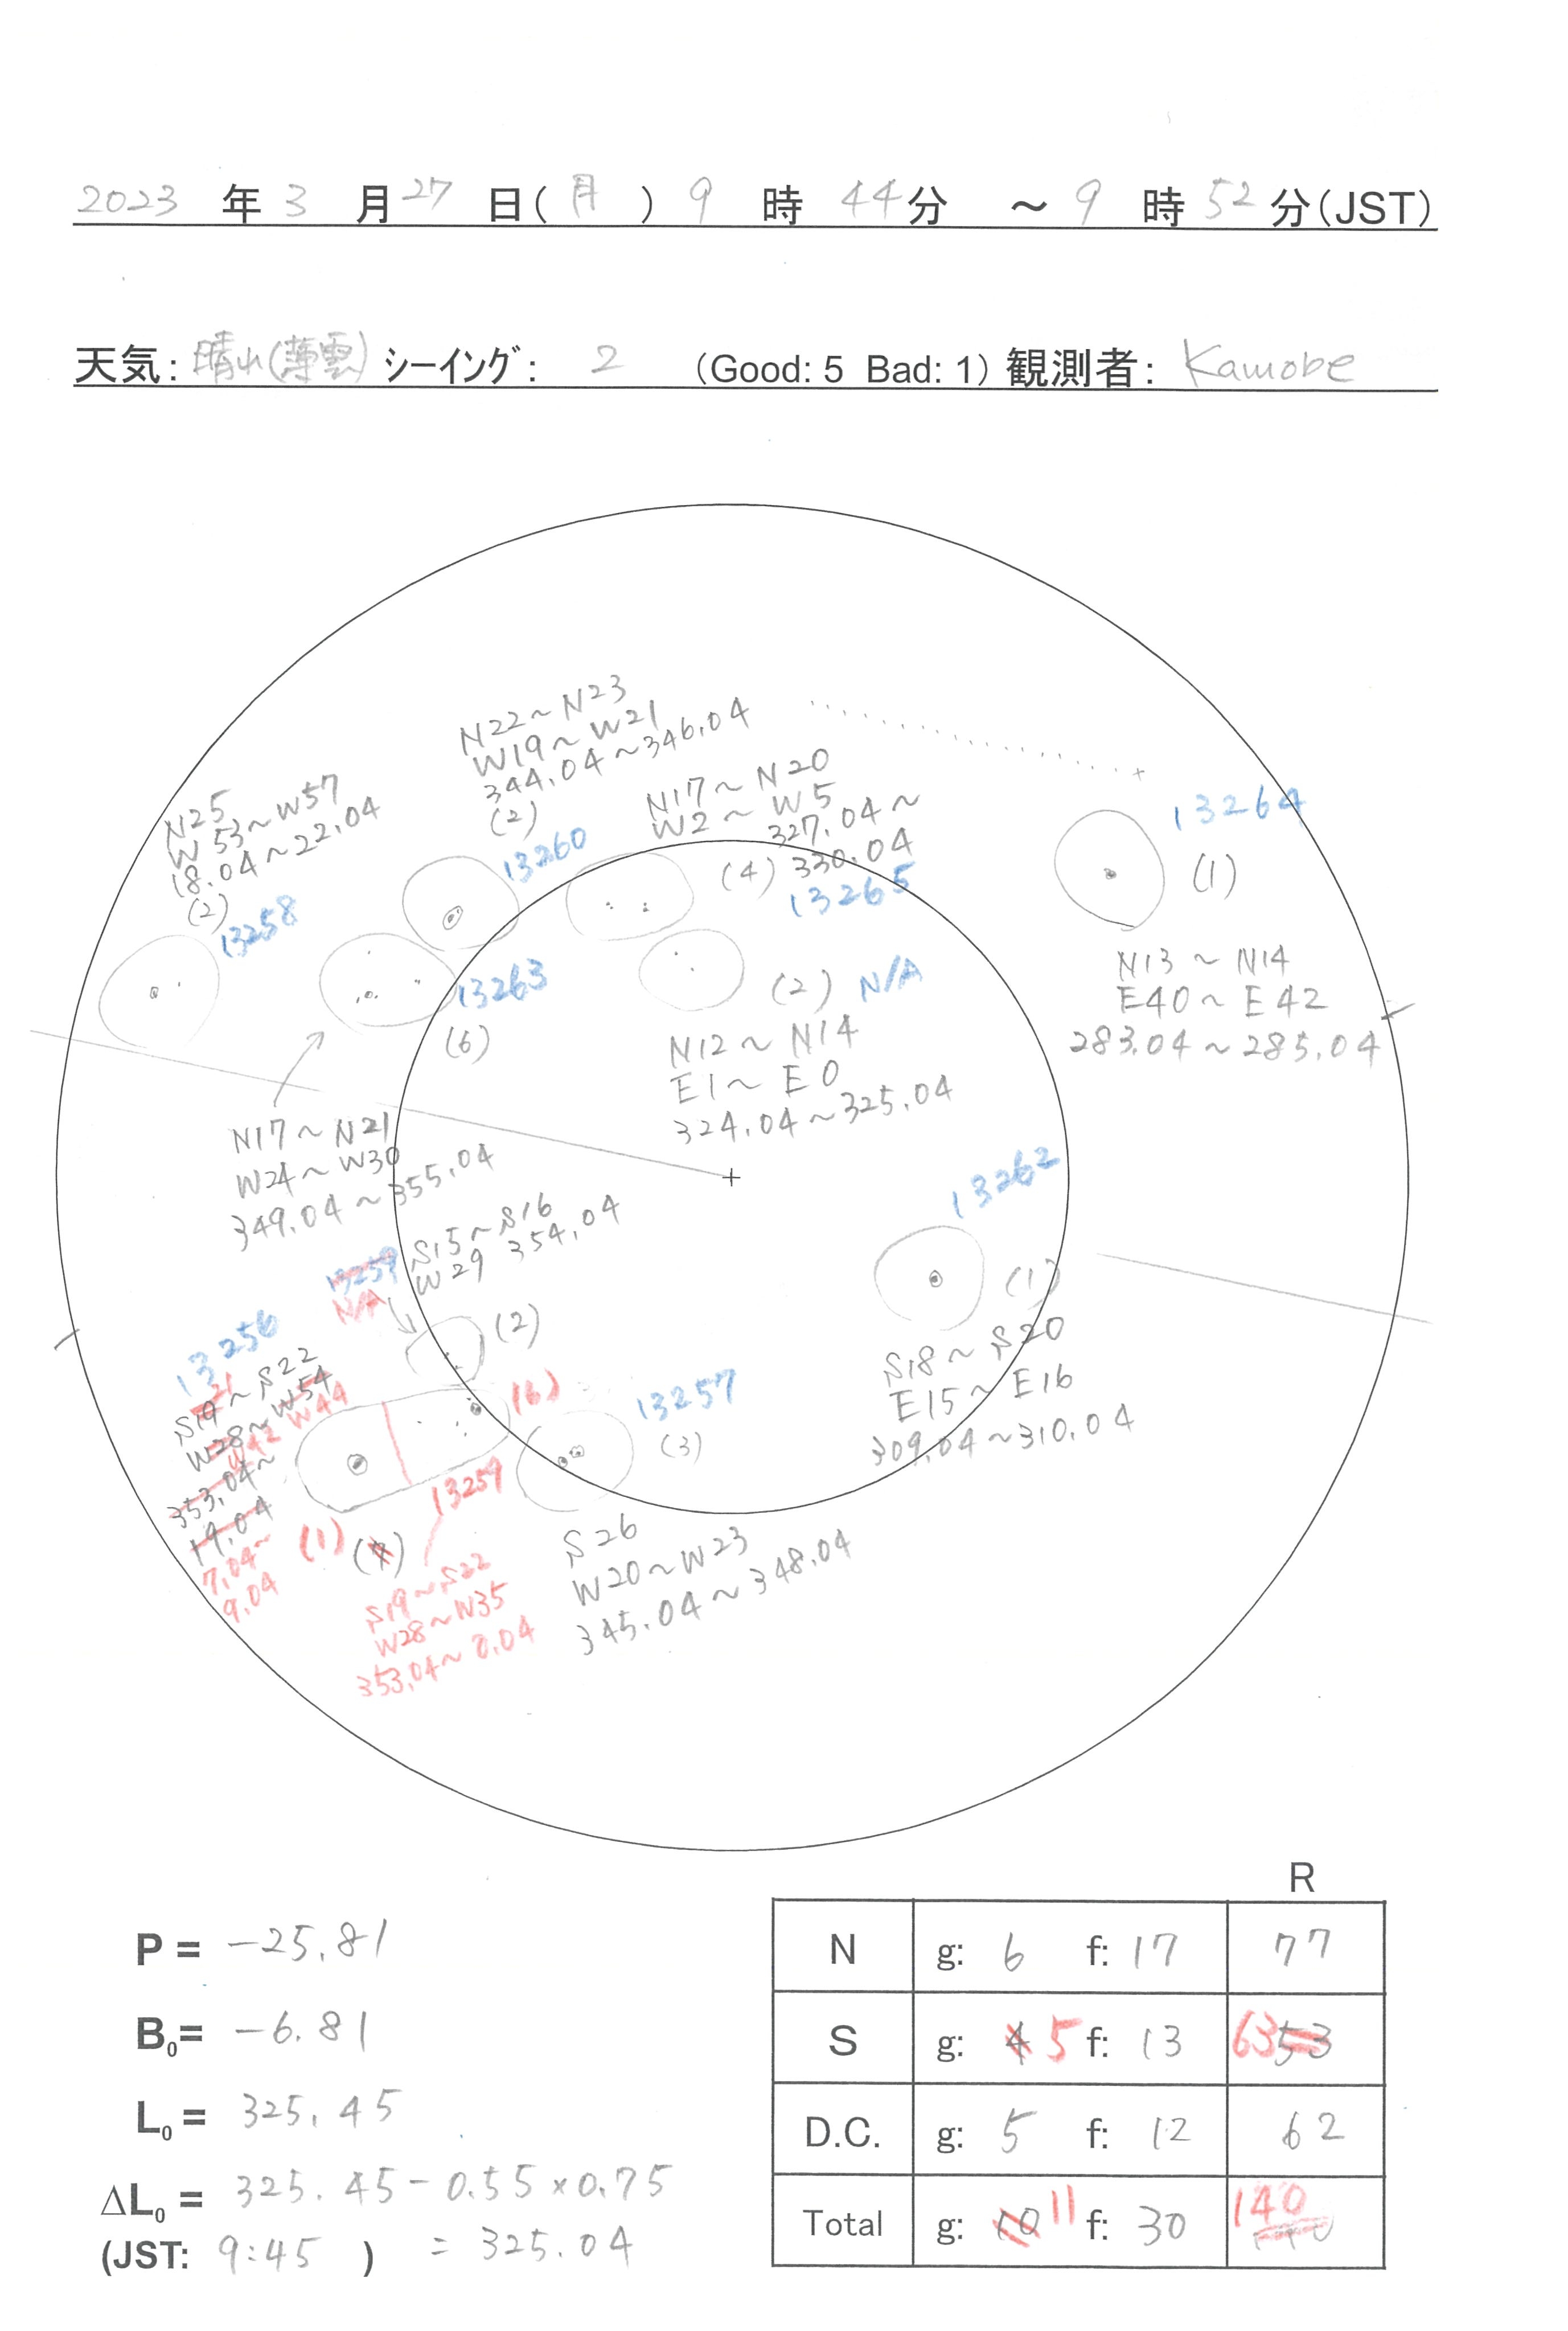 2023 年 3 月 27 日(月) 9 時 44分 ～ 9 時 52 分(JST)
天気: 晴れ(薄雲) シーイング: 2 (Good: 5 Bad: 1) 観測者: Kamobe
N22～N23
W19～W21
344.04～346.04
(2)
13260
N17～N20
W2～W5
327.04～
330.04
(4)
13265
N25
W53～W57
18.04～22.04
(2)
13258
13264
(1)
N13～N14
E40～E42
283.04～285.04
13263
(6)
N17～N21
W24～W30
349.04～355.04
(2) N/A
N12～N14
E1～E0
324.04～325.04
13262
(1)
S18～S20
E15～E16
309.04～310.04
S15～S16
W29 354.04
13259
N/A
(2)
13256
21
S19～S22
W28～W54
W42 W44
353.04～
19.04
7.04～
9.04
(1)
(6)
13259
S19～S22
W28～W35
353.04～0.04
13257
(3)
S26
W20～W23
345.04～348.04
R
P = -25.81
B0= -6.81
L0= 325.45
ΔL0= 325.45-0.55×0.75
(JST: 9:45 ) = 325.04
N g: 6 f: 17 77
S g: 4 5 f: 13 63 53
D.C. g: 5 f: 12 62
Total g: 10 11 f: 30 140